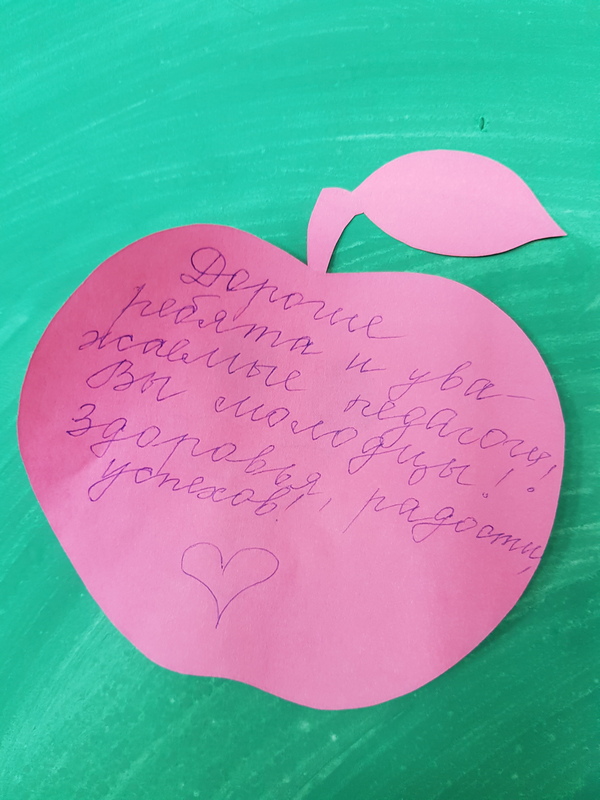 Дорогие
ребята и ува-
жаемые педагоги!
Вы молодцы!
Здоровья, радости,
успехов!